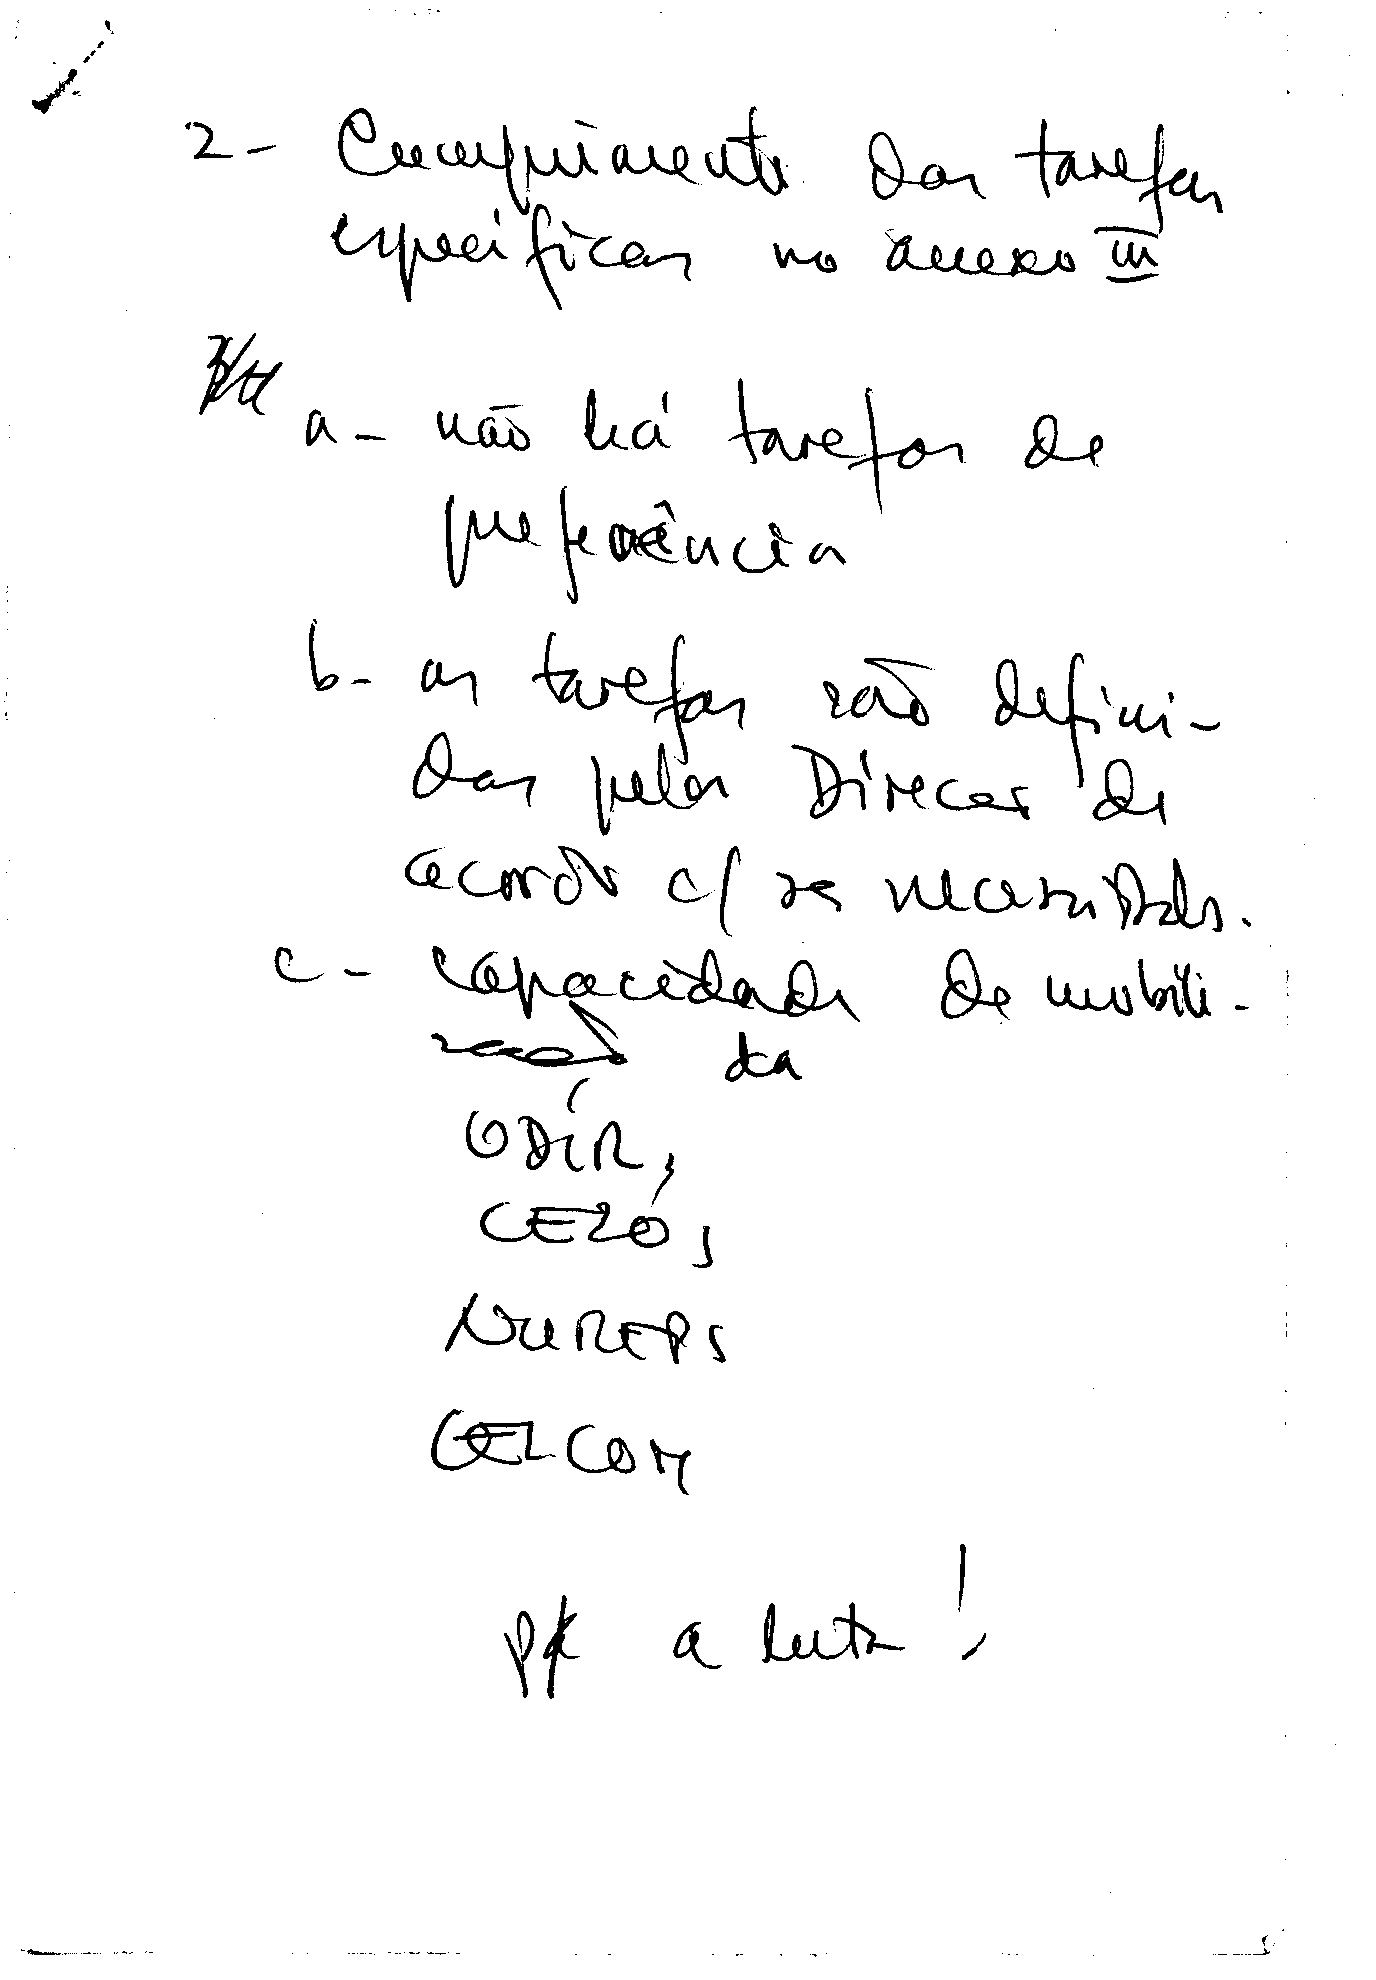 2- Cumprimento das tarefas
específicas no anexo III
a- não há tarefas de
preferência
b- as tarefas são defini-
das pela Direcção de
acordo c/ as necessidades.
c- capacidade de mobili-
zação da
ODÍR,
CEZÓ,
NUREPS
CELCOM
a luta!